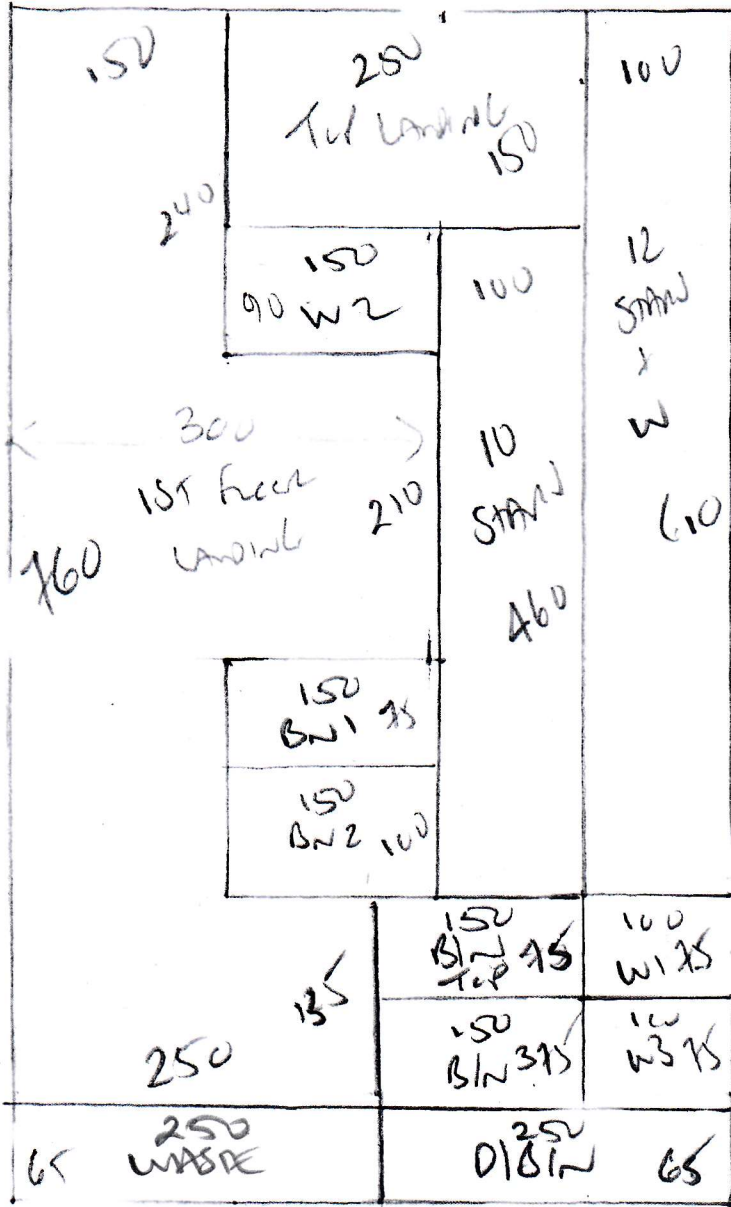 150
250
TOP LANDING
150
100
240
150
90 W2
100
12
STAIRS
W
300
1ST FLOOR
LANDING
210
10
STAIRS
460
610
760
150
BN1 75
150
BN2 100
150
BIN 75
TOP
100
W1 75
135
250
150
BIN 3 75
100
W3 75
65
250
WASTE
250
D1BIN 65